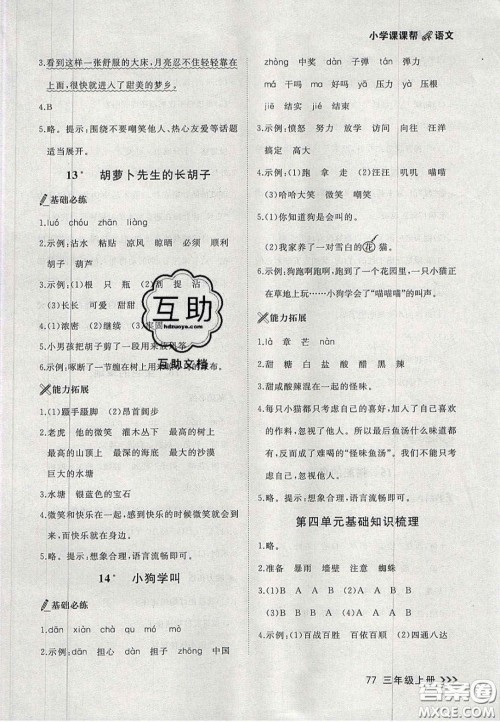 小学课课帮 语文
3.看到这样一张舒服的大床,月亮忍不住轻轻靠在
上面,很快就进入了甜美的梦乡。
4.B
5.略。提示:围绕不要嘲笑他人、热心友爱等话题
适当展开。
13* 胡萝卜先生的长胡子
基础必练
1.luó chóu zhān liàng
2.示例:沾水 粘贴 凉风 晾晒 必须 顺利
胡子 葫芦
3.示例:(1)根 只 瓶 (2)刮 捉 沾
(3)长长 可爱 甜甜
4.(1)浓密 (2)继续 (3)牢固
5.小男孩把胡子剪了一段用来放风筝。
6.示例:啄了一节蘸在树上用来
能力拓展
1.(1)蹑手蹑脚 (2)昂首阔步
2.老虎 他的微笑 灌木丛下 最高的树上
最高的山上 最深的洞里 最底下的树根
巨大的水塘
3.水塘 银蓝色的宝石
4.(1)微笑的时候能感到快乐在身体里面,有时候
微笑就是快乐。
5.略。提示:想象合理,语言流畅即可。
14* 小狗学叫
基础必练
1.dān xiàn chà qu mó mó
2.示例:dān 单一 担心 chǎn 单于 zhōng 中国
zhòng 中奖 dàn 子弹 tán 弹力
má 吗 má 吗啡 yā 压力 压根
jiē 结实 jié 结束
3.示例:愤怒 努力 功夫 访问 交往 汪汪
搞定 高大
4.示例:(1)跑 拿 走 (2)汪汪 叽叽 喵喵
(3)哈哈大笑 微笑 嘲笑
5.(1)你知道狗是会叫的。
(2)我家养了一对雪白的花猫。
6.示例:狗跑啊跑啊,跑到了一个花园里,一只小猫正
在草地上玩……小狗学会了“喵喵喵”的叫声。
能力拓展
1.là 章 芒
2.甜 糖 白 盐 酸 醋 黑 辣
3.甜咸酸辣混在一起的怪味。
4.每只小猫都只考虑自己的喜好,加入了自己喜欢
的作料,忽视了他人。所以最后鱼汤什么味道都
有,反而成了难喝的“怪味鱼汤”。我们在生活中
要多考虑他人的感受,而不能只考虑自己,忽视
他人。
5.略。提示:想象合理,语言流畅即可。
第四单元基础知识梳理
1.略。
2.准备 暴雨 墙壁 注意 蜘蛛
3.(1)B A A B (2)A A B B
4.示例:(1)百战百胜 百依百顺 (2)四通八达
77 三年级上册
互助
hdzuoye.com
互助文档
答案圈
MXQE.COM